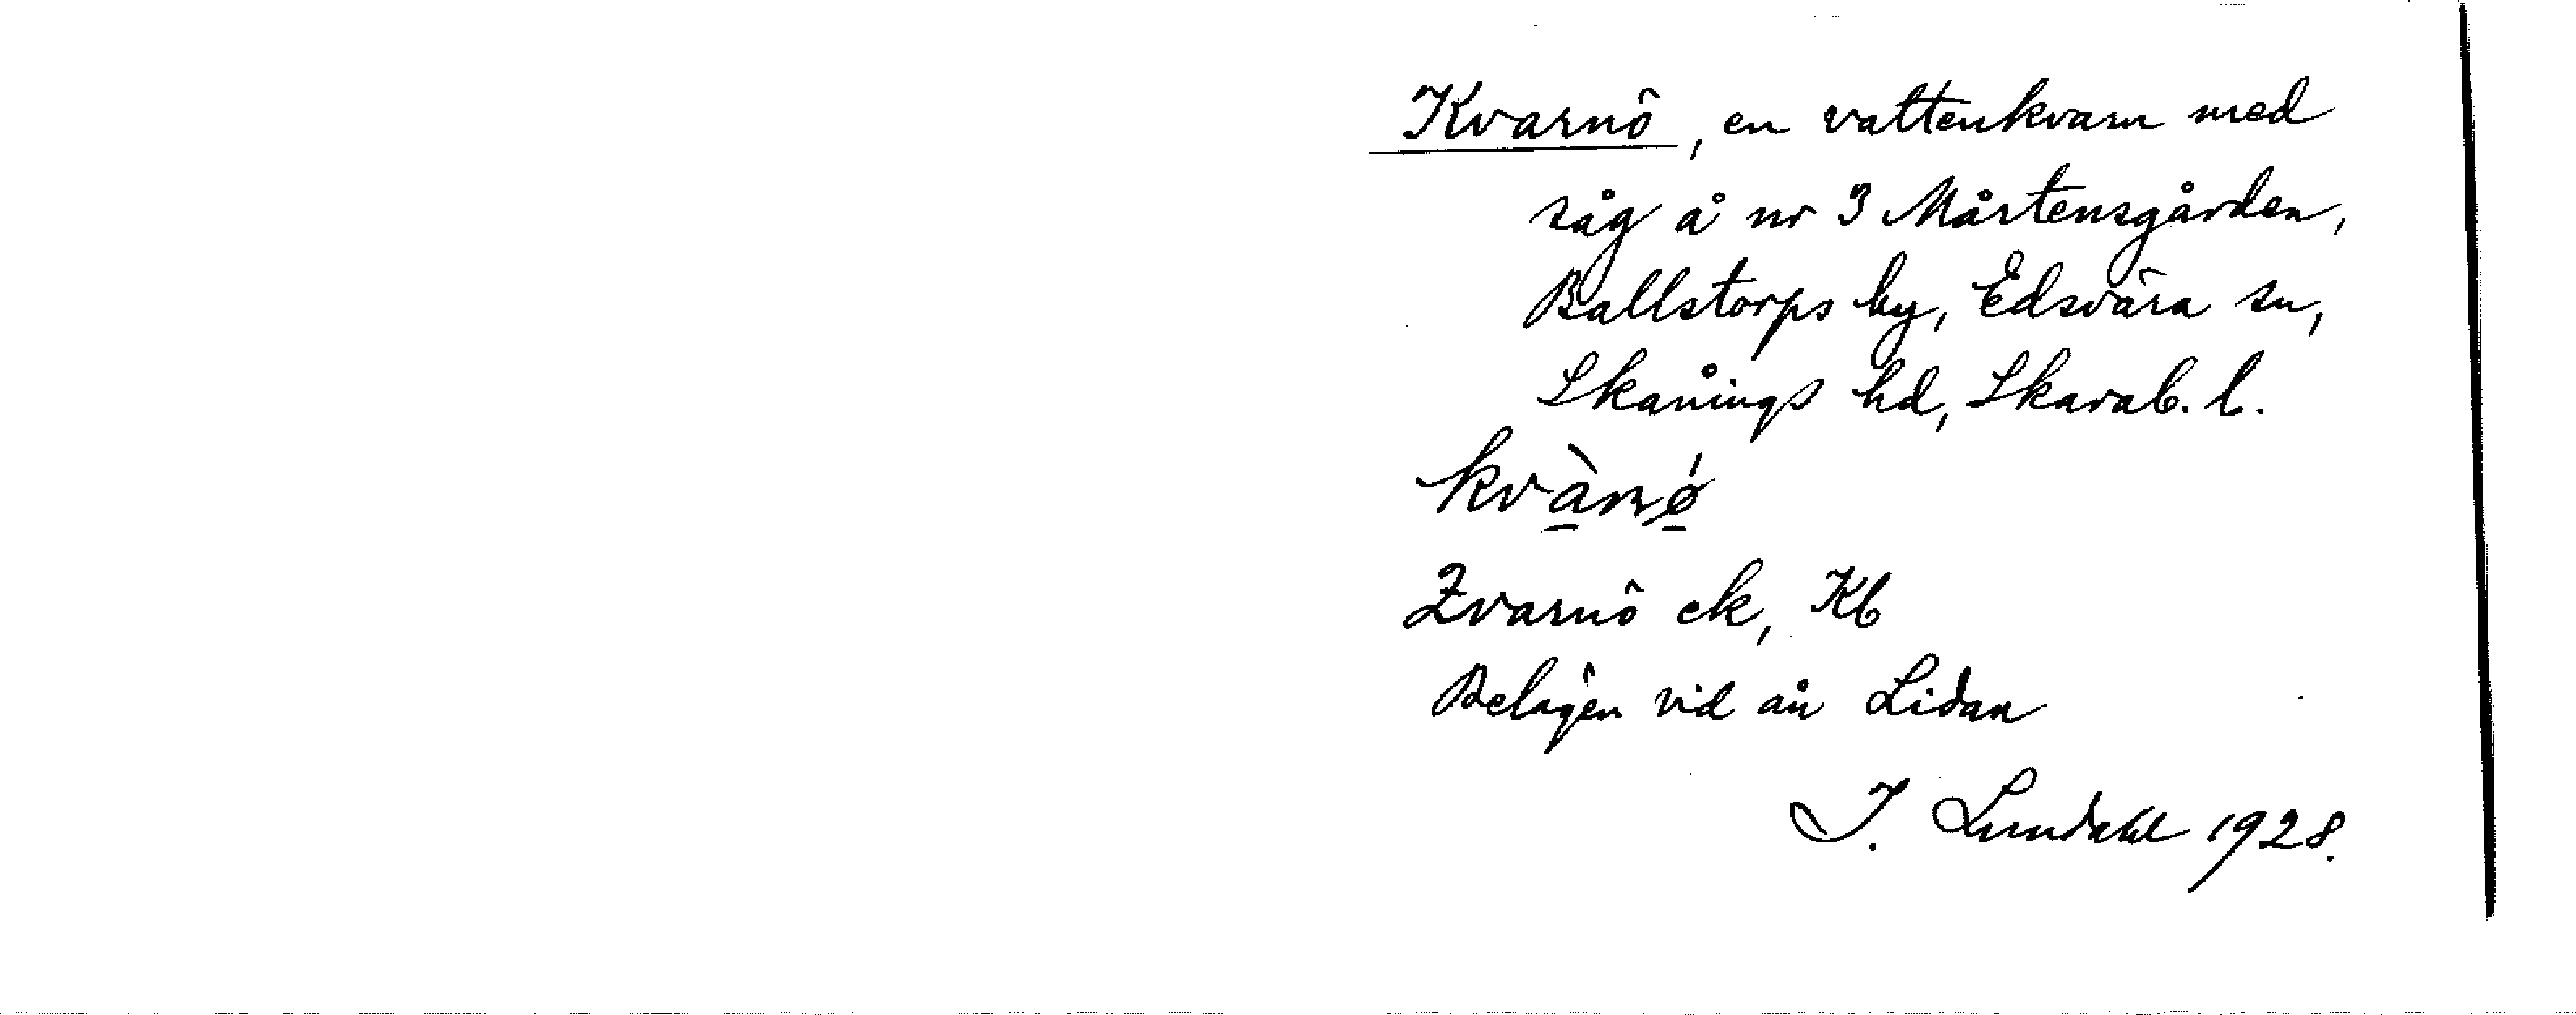 Kvarnö, en vattenkvarn med
såg å nr 3 Mårtensgården,
Ballstorps by, Edsvära sn,
Skånings hd, Skarab. l.
kvànǿ
Qvarnö ek, Kb
Belägen vid ån Lidan
I. Lundahl 1928.